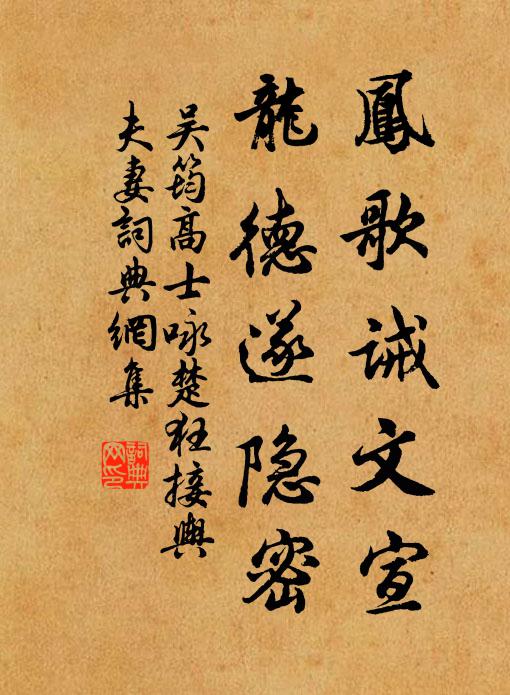 鳳歌誡文宣
龍德遂隐密
吴筠高士咏楚狂接輿
夫妻詞典網集
詞典網印